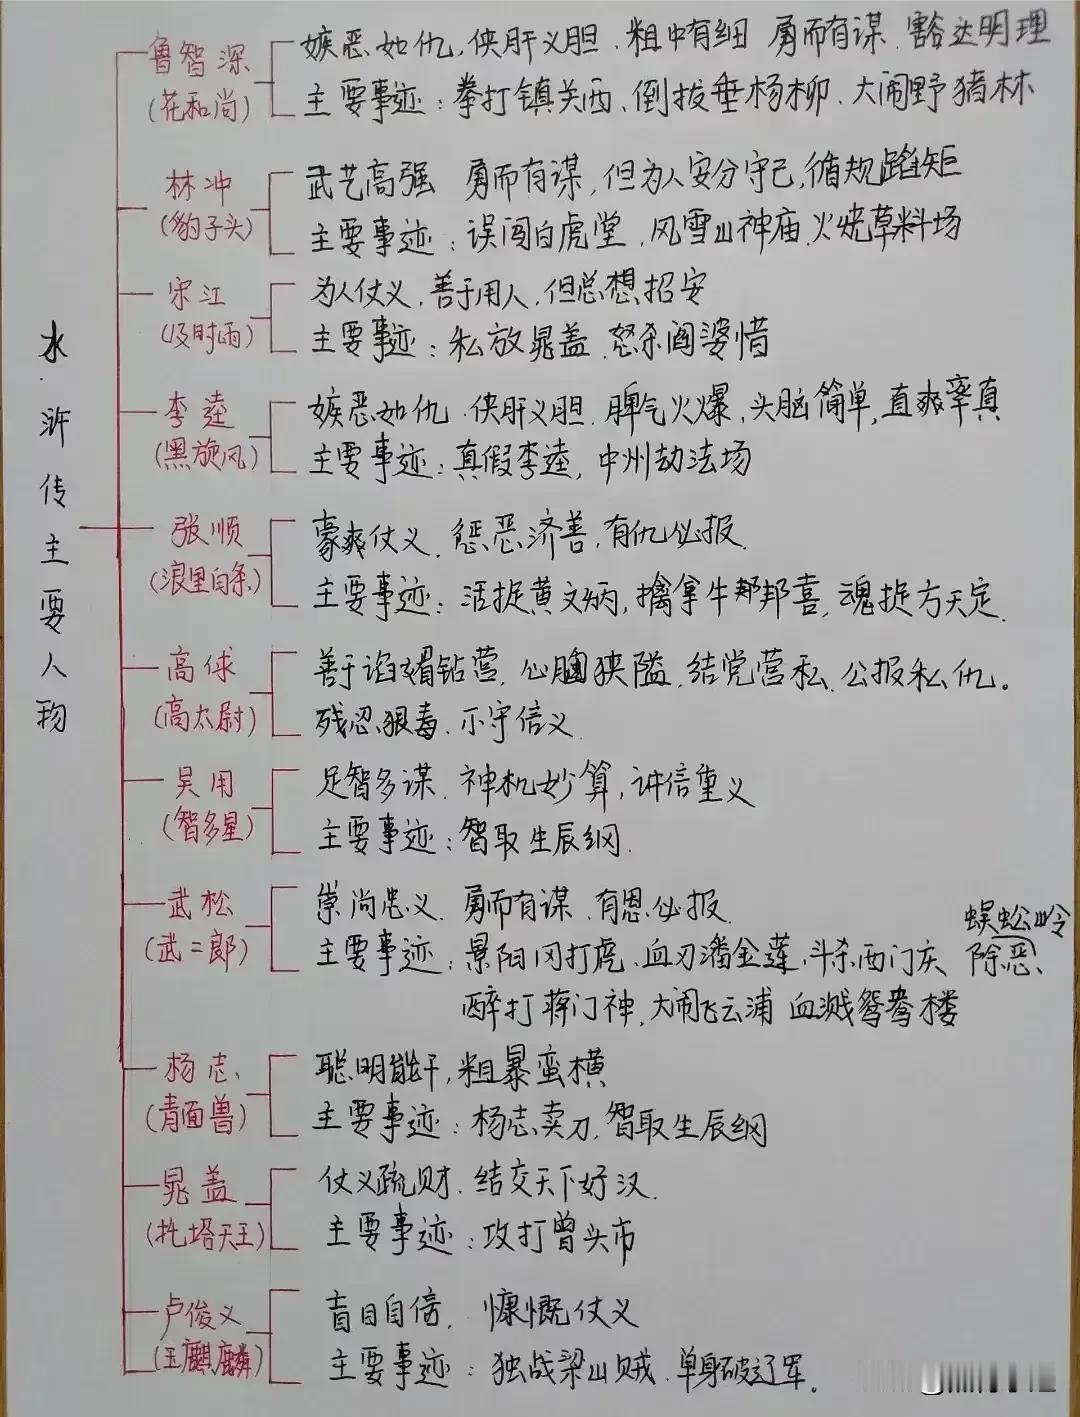 水浒传主要人物
鲁智深
(花和尚)
嫉恶如仇,侠肝义胆.粗中有细 勇而有谋.豁达明理
主要事迹:拳打镇关西、倒拔垂杨柳.大闹野猪林
林冲
(豹子头)
武艺高强 勇而有谋,但为人安分守己,循规蹈矩
主要事迹:误闯白虎堂.风雪山神庙.火烧草料场
宋江
(及时雨)
为人仗义,善于用人,但总想招安
主要事迹:私放晁盖.怒杀阎婆惜
李逵
(黑旋风)
嫉恶如仇.侠肝义胆.脾气火爆,头脑简单,直爽率真
主要事迹:真假李逵,中州劫法场
张顺
(浪里白条)
豪爽仗义.惩恶济善,有仇必报.
主要事迹:活捉黄文炳,擒拿牛邦邦喜,魂捉方天定.
高俅
(高太尉)
善于谄媚钻营.心胸狭隘.结党营私.公报私仇。
残忍狠毒.不守信义.
吴用
(智多星)
足智多谋.神机妙算,讲信重义
主要事迹:智取生辰纲.
武松
(武二郎)
崇尚忠义.勇而有谋.有恩必报.
主要事迹:景阳冈打虎.血刃潘金莲.斗杀西门庆 蜈蚣岭除恶、
醉打蒋门神,大闹飞云浦 血溅鸳鸯楼
杨志
(青面兽)
聪明能干,粗暴蛮横
主要事迹:杨志卖刀.智取生辰纲
晁盖
(托塔天王)
仗义疏财.结交天下好汉.
主要事迹:攻打曾头市
卢俊义
(玉麒麟)
盲目自信.慷慨仗义
主要事迹:独战梁山贼.单身破辽军.